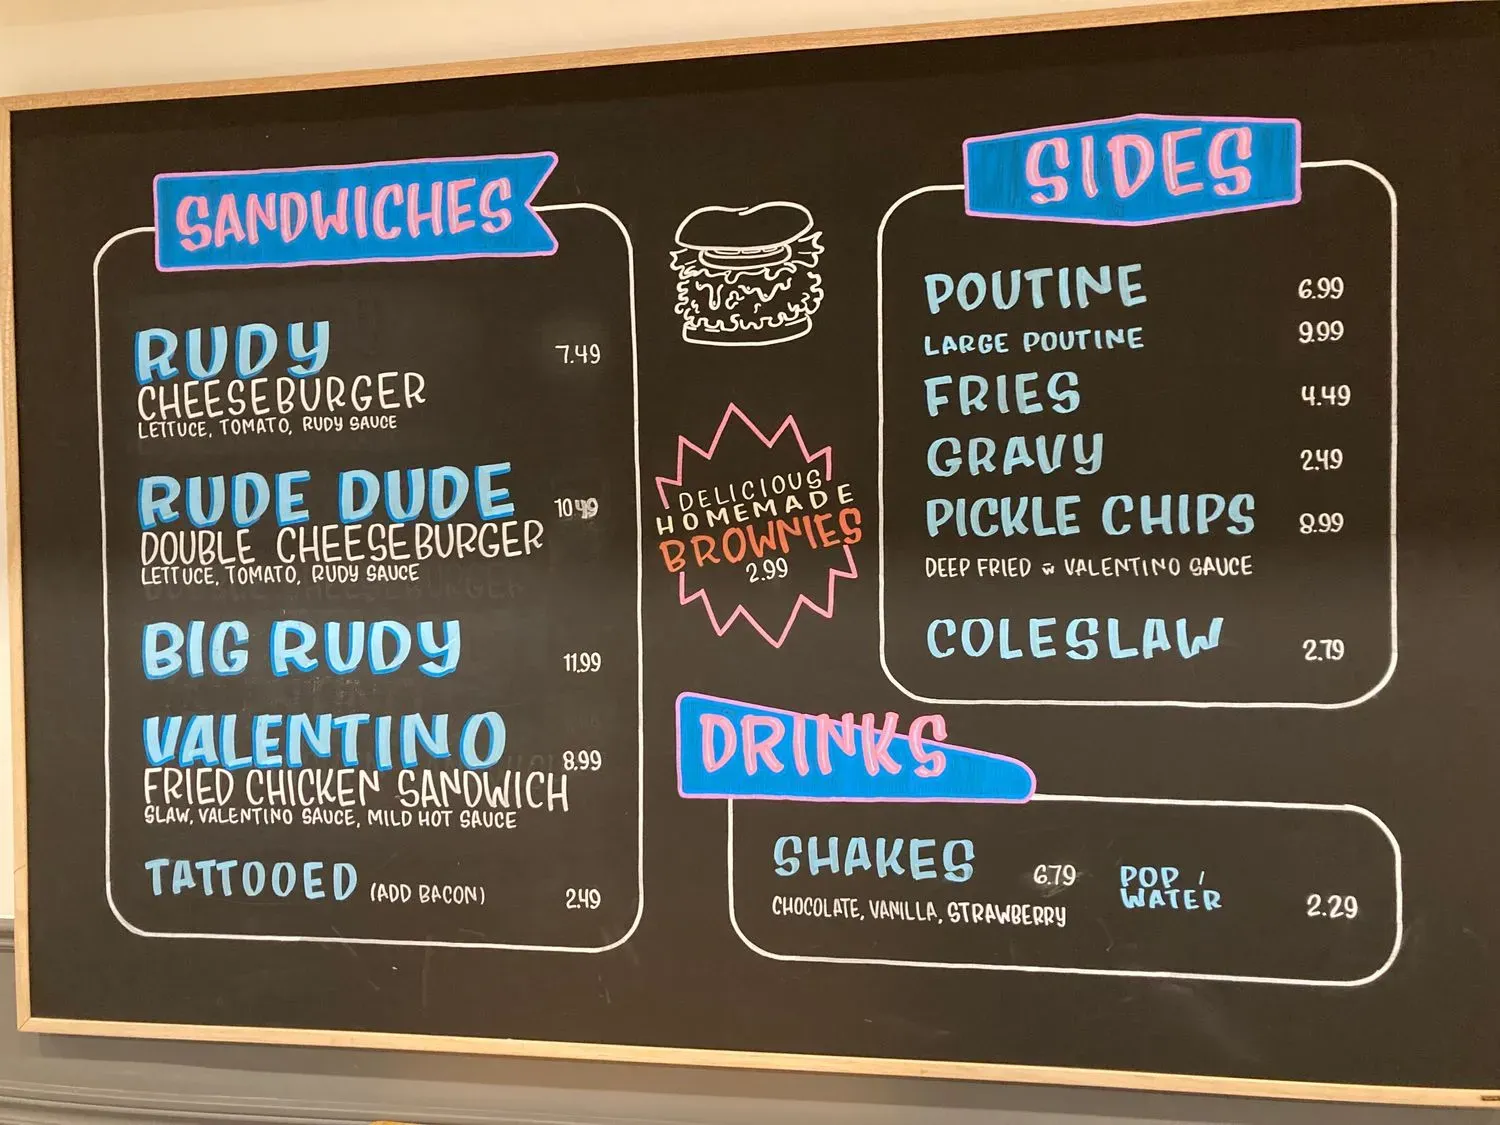 SANDWICHES
RUDY 7.49
CHEESEBURGER
LETTUCE, TOMATO, RUDY SAUCE
RUDE DUDE 10.49
DOUBLE CHEESEBURGER
LETTUCE, TOMATO, RUDY SAUCE
BIG RUDY 11.99
VALENTINO 8.99
FRIED CHICKEN SANDWICH
SLAW, VALENTINO SAUCE, MILD HOT SAUCE
TATTOOED (ADD BACON) 2.49
DELICIOUS
HOMEMADE
BROWNIES
2.99
SIDES
POUTINE 6.99
LARGE POUTINE 9.99
FRIES 4.49
GRAVY 2.49
PICKLE CHIPS 8.99
DEEP FRIED w VALENTINO SAUCE
COLESLAW 2.79
DRINKS
SHAKES 6.79
CHOCOLATE, VANILLA, STRAWBERRY
POP /
WATER 2.29